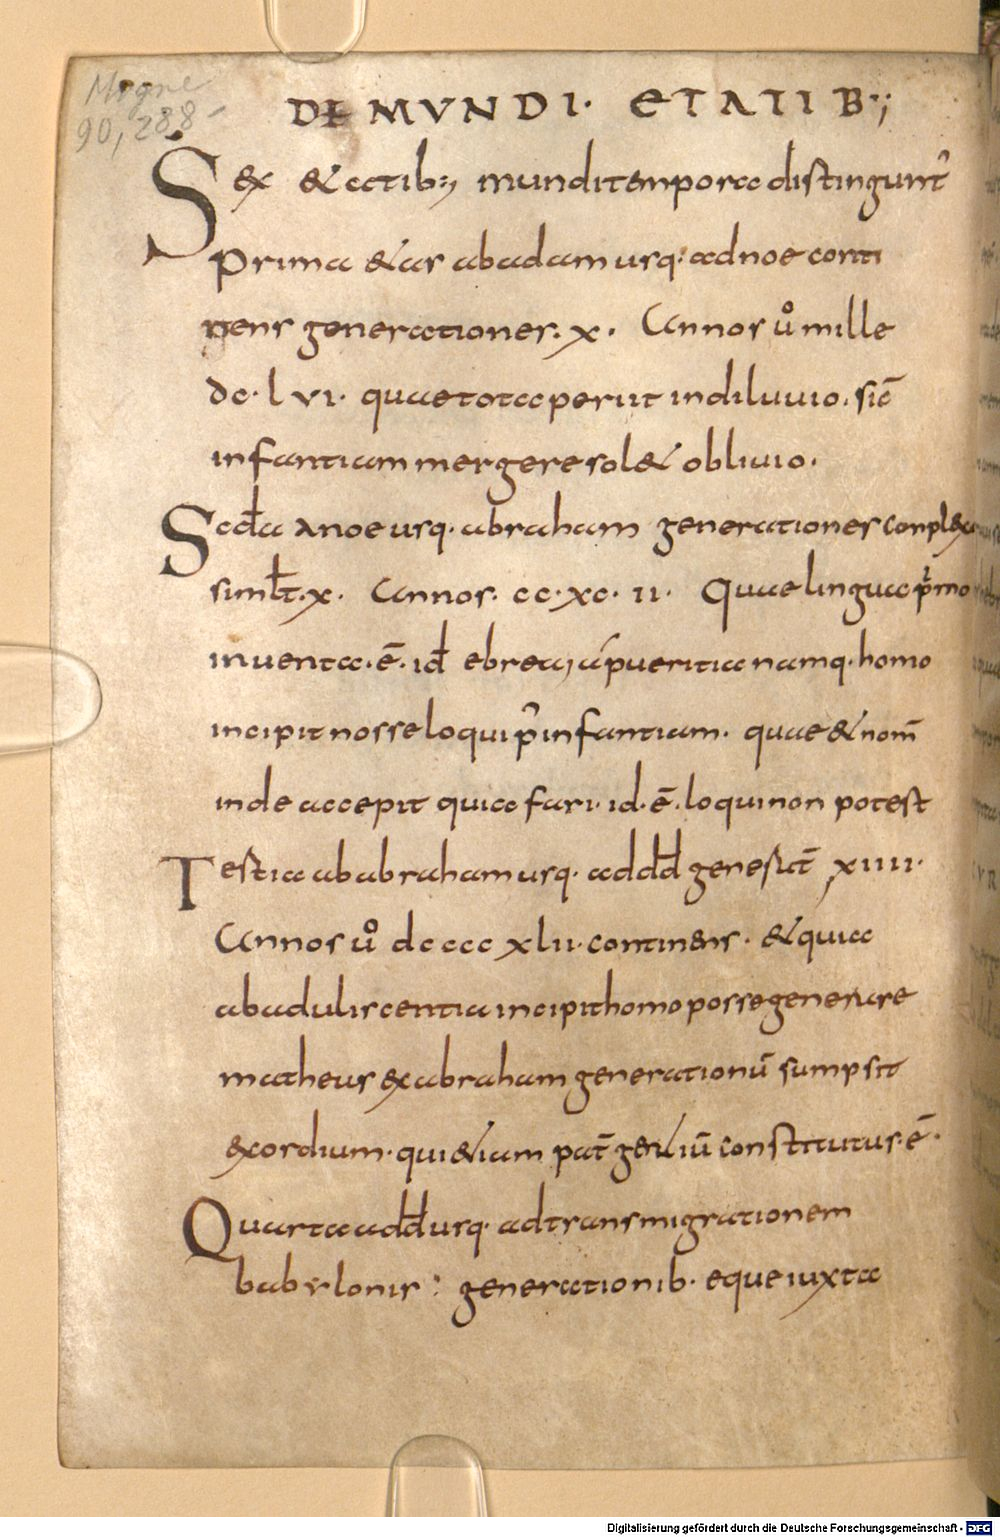 Migne
90, 288
DE MVNDI· ETATIB·;
Sex &atib:, mundi tempora distingunt᷑
Prima &as ab adam usq· ad noe conti
nens generationes· x· Annos uͦ mille
dc· lvi· quae tota periit in diluuio· sic̄
infantiam mergere sol& obliuio·
Scđa a noe usq· abraham generationes conplexa
simłt· x· Annos· cc· xc· ii· Quae lingua pͥmo
inuenta· ē· iđ ebrea, a pueritia namq· homo
incipit nosse loqui p᷑ infantiam· quae & nom̄
inde accepit quia fari· id· ē· loqui non potest
Testia ab abraham usq· ad dđd genesat̄ xiiii·
Annos uͦ dcccc xlii· continens· & quia
ab aduliscentia incipit homo posse generare
matheus ex abraham generationū sumpsit
exordium· qui &iam pat̄ gentiū constitutus· ē·
Quarta a dđd usq· ad transmigrationem
babylonis: generationib· eque iuxta
Digitalisierung gefördert durch die Deutsche Forschungsgemeinschaft - DFG